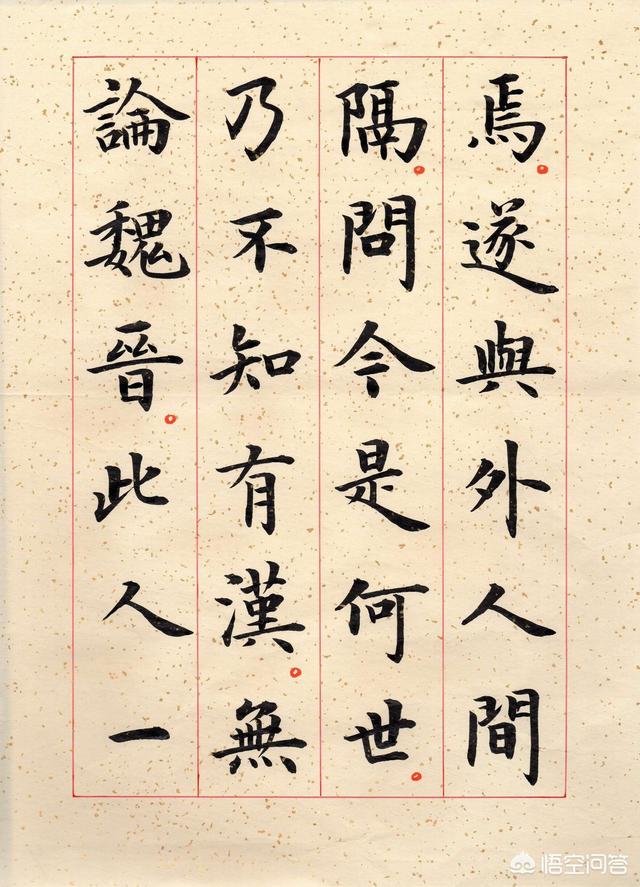 焉遂與外人間
隔問今是何世
乃不知有漢無
論魏晉此人一
悟空问答